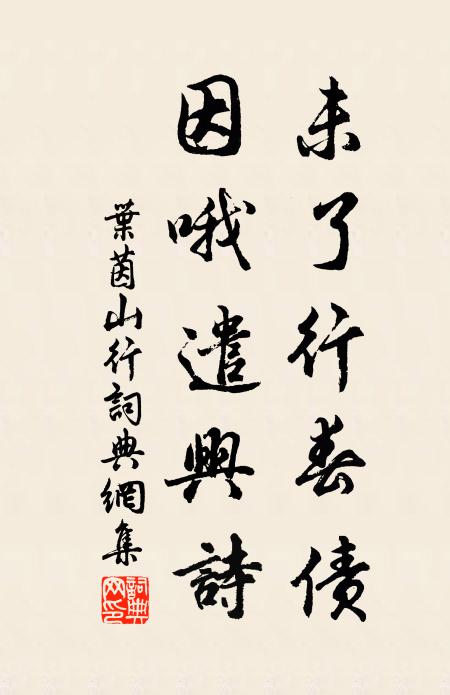 未了行春债
因哦遣興詩
葉茵山行詞典網集
詞典网印